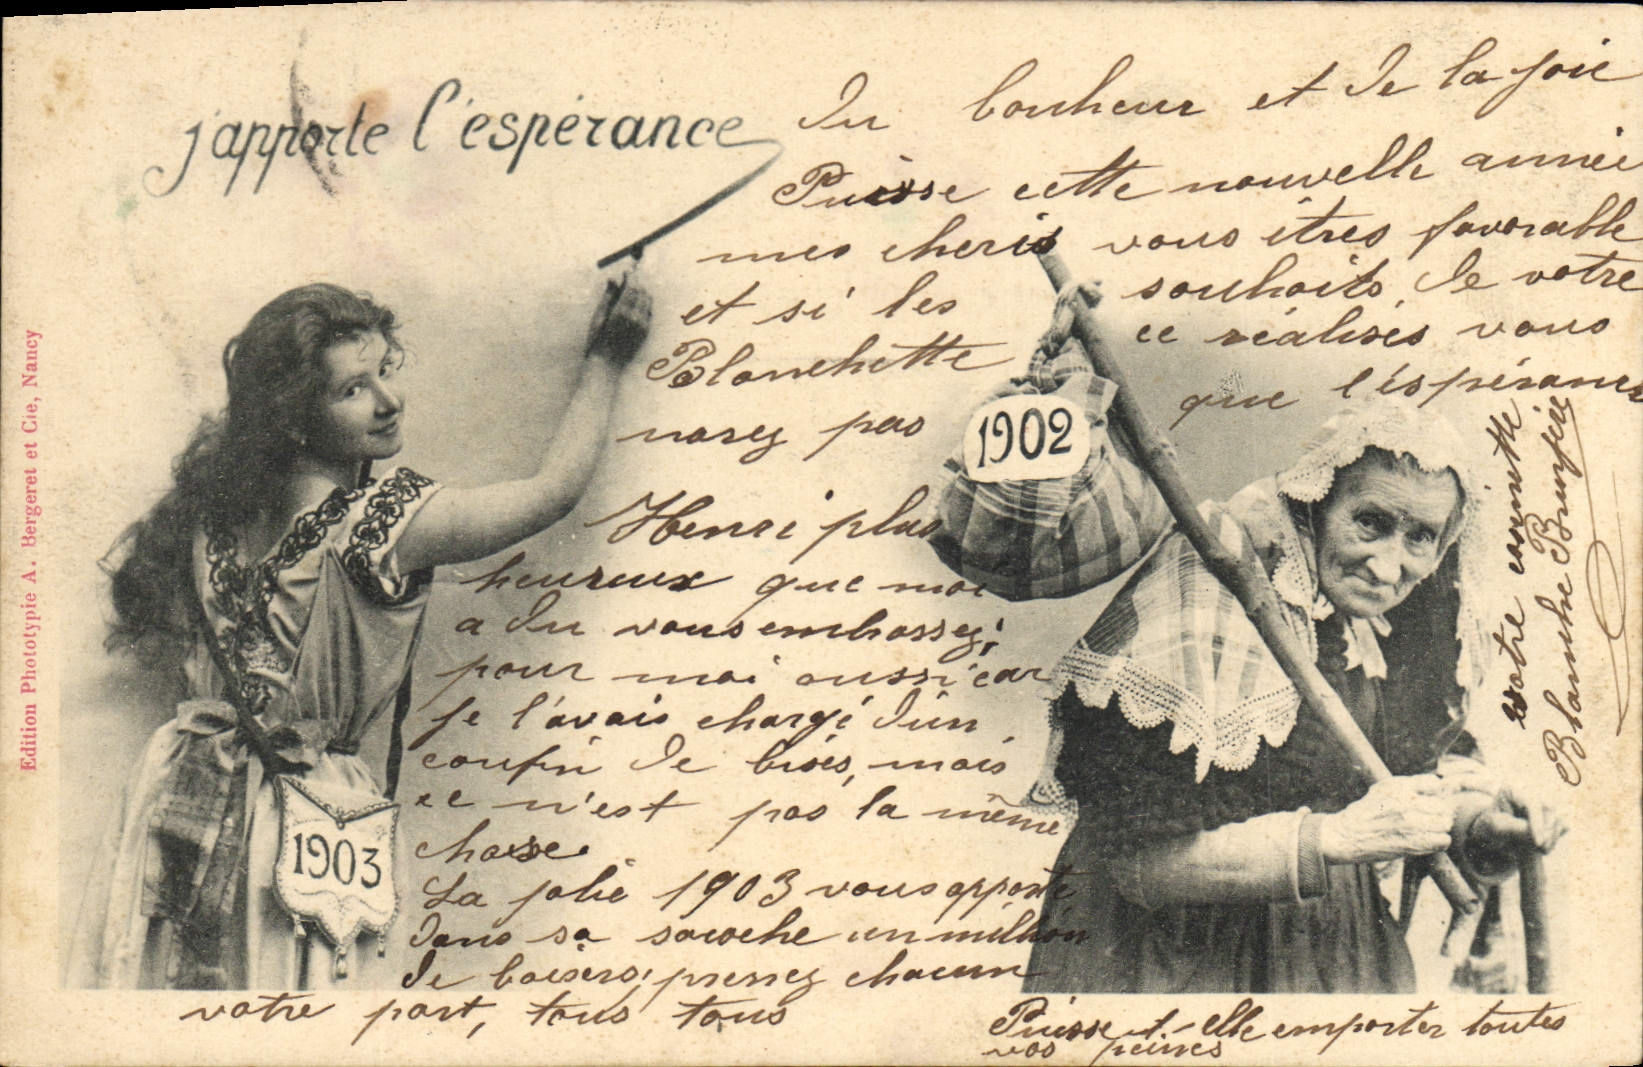 j'apporte l'éspérance
Du bonheur et de la joie
Puisse cette nouvelle année
mes cheris vous êtres favorable
et si les souhaits de votre
Blanchette ce réalises vous
narez pas que l'éspérance
1902
Henri plus
heureux que moi
a du vous embrassez;
pour moi aussi car
je l'avais chargé d'un
coufin de bisés, mais
ce n'est pas la même
chose.
La jolie 1903 vous apporte
dans sa sacoche un million
de baisers, prenez chacun
votre part, tous tous
Puisse-t-elle emporter toutes
vos peines
votre cosinette
Blanche Brunfière
1903
Edition Phototypie A. Bergeret et Cie, Nancy